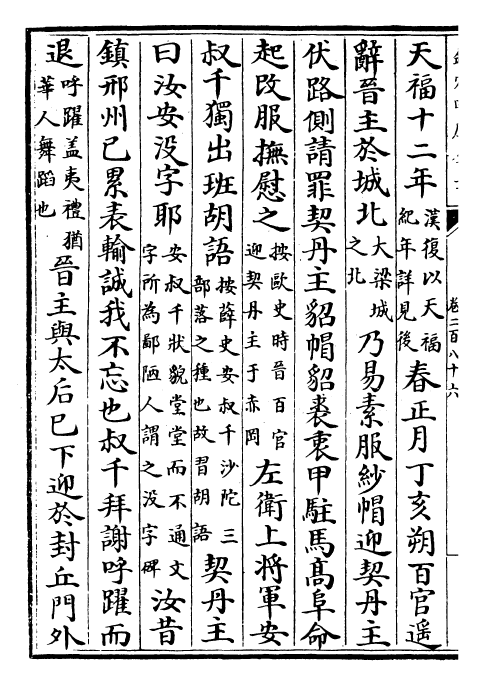 天福十二年漢復以天福紀年詳見後春正月丁亥朔百官遙
辭晉主於城北大梁城之北乃易素服紗帽迎契丹主
伏路側請罪契丹主貂帽貂裘衷甲駐馬髙阜命
起改服撫慰之按歐史時晉百官迎契丹主于赤岡左衛上將軍安
叔千獨出班胡語按薛史安叔千沙陀三部落之種也故習胡語契丹主
曰汝安没字耶安叔千狀貌堂堂而不通文字所為鄙陋人謂之没字碑汝昔
鎮邢州已累表輸誠我不忘也叔千拜謝呼躍而
退呼躍盖夷禮猶華人舞蹈也晉主與太后已下迎於封丘門外
卷二百八十六